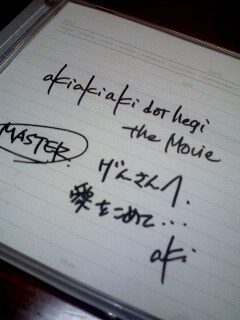 akiakiaki dot hegi
the Movie
MASTER
げんさんへ.
愛をこめて...
aki